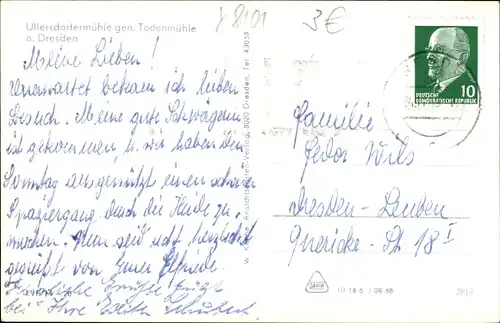 Ullersdorfermühle gen. Todenmühle
a. Dresden
3€
Meine Lieben!
Unerwartet bekam ich lieben
Besuch. Meine gute Schwägerin
ist gekommen, u. wir haben den
Sonntag ausgenützt einen schönen
Spaziergang durch die Heide zu
machen. Nun seid recht herzlich
gegrüßt von Eurer Elfriede.
Herzliche Grüße fügt
bei Ihre Edith Schubert
Ansichtskarten-Verlag, 8020 Dresden, Tel. 43059
DEUTSCHE
DEMOKRATISCHE REPUBLIK
10
Familie
Fedor Wils
Dresden-Leuben
Guericke-St 18 I
III 18 6 J 09 68